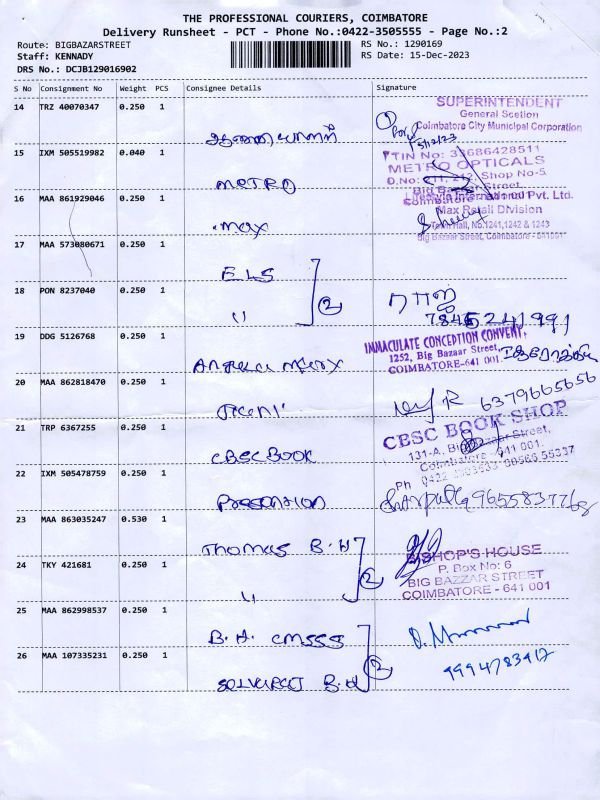 THE PROFESSIONAL COURIERS, COIMBATORE
Delivery Runsheet - PCT - Phone No.:0422-3505555 - Page No.:2
Route: BIGBAZARSTREET RS No.: 1290169
Staff: KENNADY RS Date: 15-Dec-2023
DRS No.: DCJB129016902
S No Consignment No Weight PCS Consignee Details Signature
14 TRZ 40070347 0.250 1
ஆணையாளர்
SUPERINTENDENT
General Scetion
Coimbatore City Municipal Corporation
15 IXM 505519982 0.040 1
METRO
TIN No: 33686428511
METRO OPTICALS
Shop No-5
Big Bazaar Street,
16 MAA 861929046 0.250 1
Max
Lifestyle International Pvt. Ltd.
Max Retail Division
Town Hall, No.1241,1242 & 1243
Big Bazaar Street, Coimbatore - 641001
17 MAA 573080671 0.250 1
ELS
18 PON 8237040 0.250 1
" 2
ராஜ
7845241991
19 DDG 5126768 0.250 1
IMMACULATE CONCEPTION CONVENT,
1252, Big Bazaar Street,
COIMBATORE-641 001.
20 MAA 862818470 0.250 1
6379665656
21 TRP 6367255 0.250 1
CBSC BOOK
CBSC BOOK SHOP
131-A, Big Bazaar Street,
Coimbatore - 641 001.
22 IXM 505478759 0.250 1
Presentation
9655837768
23 MAA 863035247 0.530 1
Thomas B.H
24 TKY 421681 0.250 1
" 2
BISHOP'S HOUSE
P. Box No: 6
BIG BAZZAR STREET
COIMBATORE - 641 001
25 MAA 862998537 0.250 1
B.H. CMSSS
26 MAA 107335231 0.250 1
B.H 2